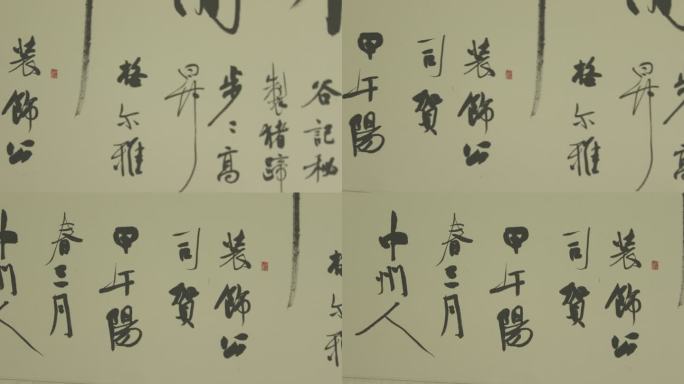 谷記秘
製猪蹄
步〻高
昇
格尔雅
装飾公
昇
格尔雅
装飾公
司賀
甲午陽
格尔雅
装飾公
司賀
甲午陽
春三月
中州人
装飾公
司賀
甲午陽
春三月
中州人